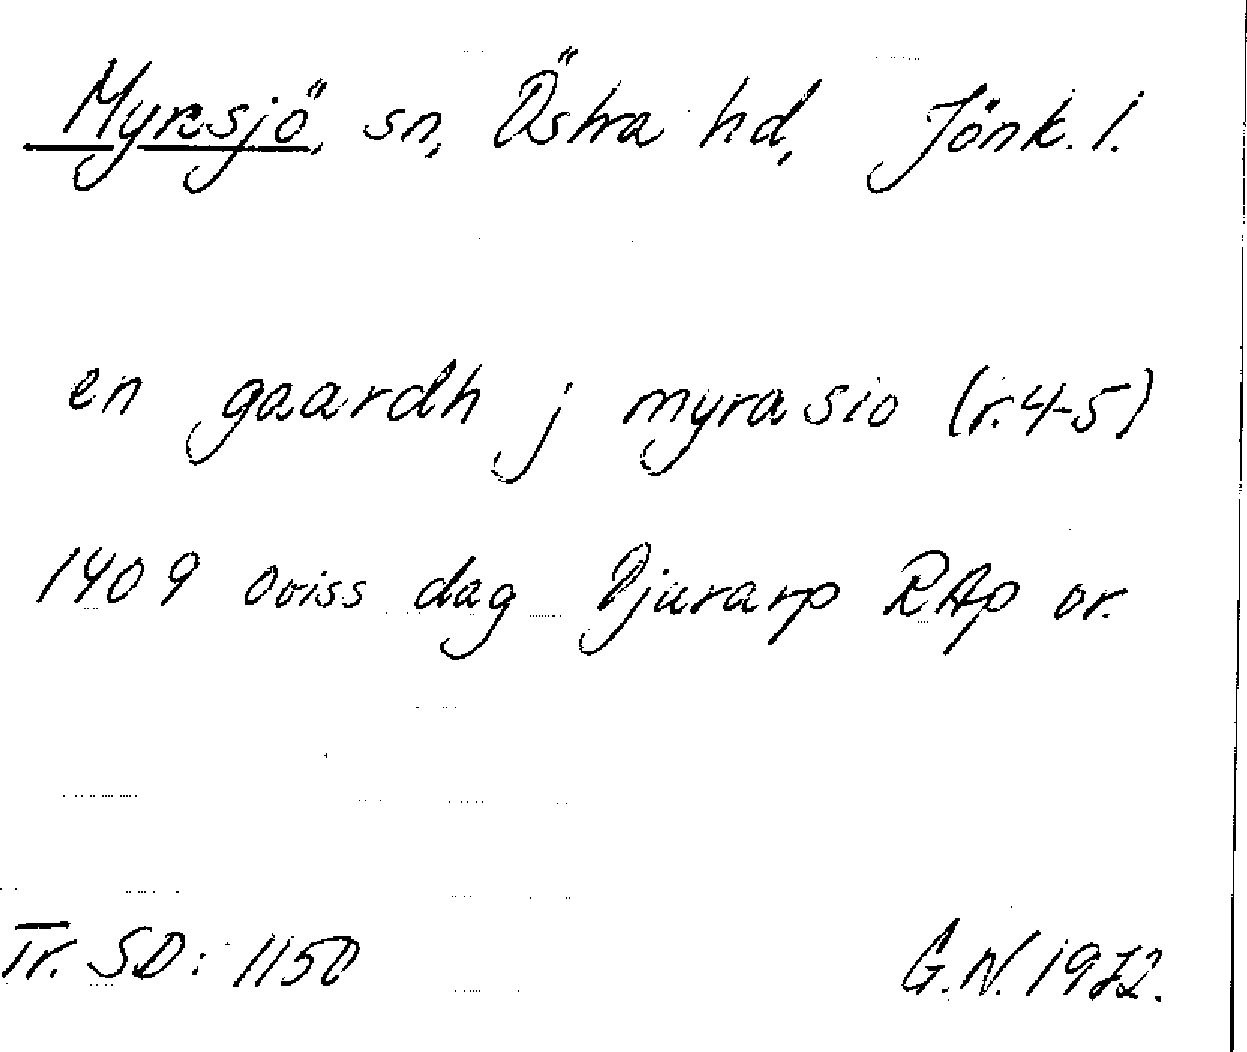 Myresjö, sn, Östra hd, Jönk. l.
en gaardh j myrasio (r. 4-5)
1409 oviss dag Djurarp RAp or.
Tr. SD: 1150 G.N. 1972.